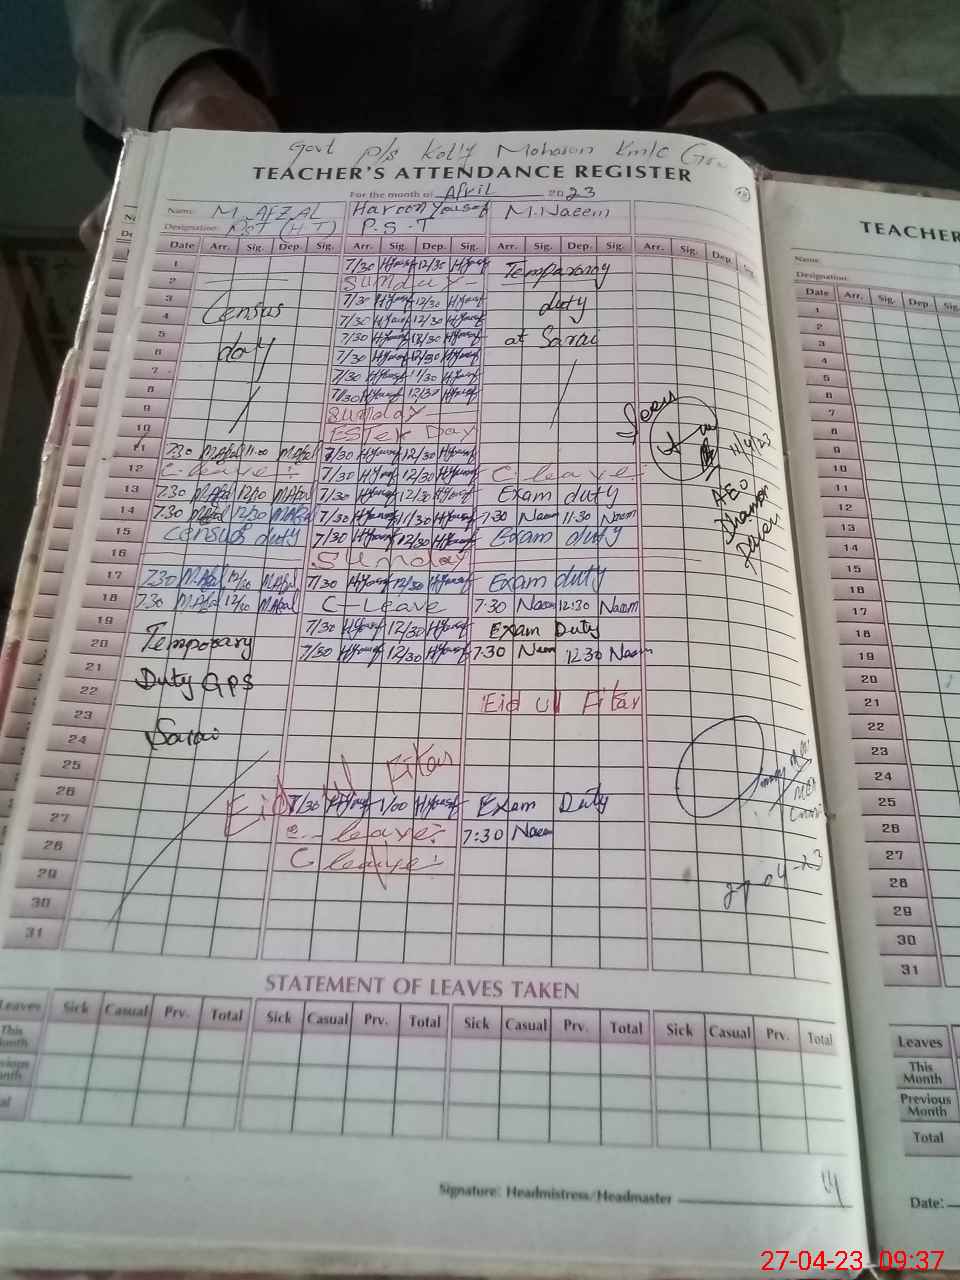 Govt P/S Kotly Moharan
TEACHER'S ATTENDANCE REGISTER
For the month of April 2023
Name: M. AFZAL Haroon Yousaf M. Naeem
Designation: PST (H T) P.S.T
Date Arr. Sig. Dep. Sig. Arr. Sig. Dep. Sig. Arr. Sig. Dep. Sig. Arr. Sig. Dep. Sig.
1 7/30 HYousf 12/30 HYousf Temparary
2 Sunday
3 Census 7/30 HYousf 12/30 HYousf duty
4 7/30 HYousf 12/30 HYousf
5 day 7/30 HYousf 12/30 HYousf at Sarai
6 7/30 HYousf 12/30 HYousf
7 7/30 HYousf 11/30 HYousf
8 7/30 HYousf 12/30 HYousf
9 Sunday
10 ESTer Day
11 7.30 MAfzal 11.00 MAfzal 7/30 HYousf 12/30 HYousf
12 C-leave: 7/30 HYousf 12/30 HYousf C leave:
13 7.30 MAfzal 12/30 MAfzal 7/30 HYousf 12/30 HYousf Exam duty
14 7.30 MAfzal 12/30 MAfzal 7/30 HYousf 11/30 HYousf 7.30 Naeem 11.30 Naeem
15 Census duty 7/30 HYousf 12/30 HYousf Exam duty
16 Sunday
17 7.30 MAfzal 12/30 MAfzal 7/30 HYousf 12/30 HYousf Exam duty
18 7.30 MAfzal 12/30 MAfzal C-Leave 7.30 Naeem 12:30 Naeem
19 7/30 HYousf 12/30 HYousf Exam Duty
20 Temporary 7/30 HYousf 12/30 HYousf 7.30 Naeem 12.30 Naeem
21 Duty GPS
22 Eid ul Fitar
23 Sarai
24
25 Eid ul Fitar
26 7/30 HYousf 1/00 HYousf Exam Duty
27 C-leave: 7:30 Naeem
28 C leave:
29
30
31
Seen
11/4/23
AEO
27-04-23
STATEMENT OF LEAVES TAKEN
Leaves Sick Casual Prv. Total Sick Casual Prv. Total Sick Casual Prv. Total Sick Casual Prv. Total
This Month
Previous Month
Total
Signature: Headmistress/Headmaster
TEACHER
Name:
Designation:
Date Arr. Sig. Dep. Sig.
1
2
3
4
5
6
7
8
9
10
11
12
13
14
15
16
17
18
19
20
21
22
23
24
25
26
27
28
29
30
31
Leaves
This Month
Previous Month
Total
Date:
27-04-23 09:37